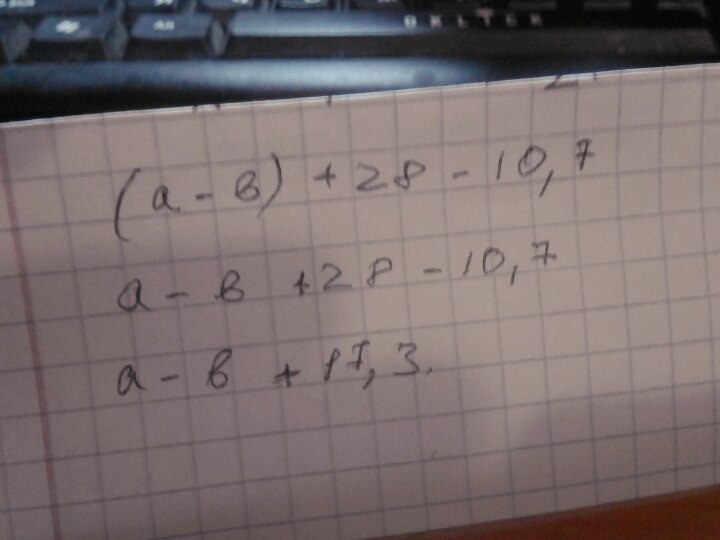 OKLICK
(a - в) + 28 - 10,7
a - в + 28 - 10,7
a - в + 17,3.